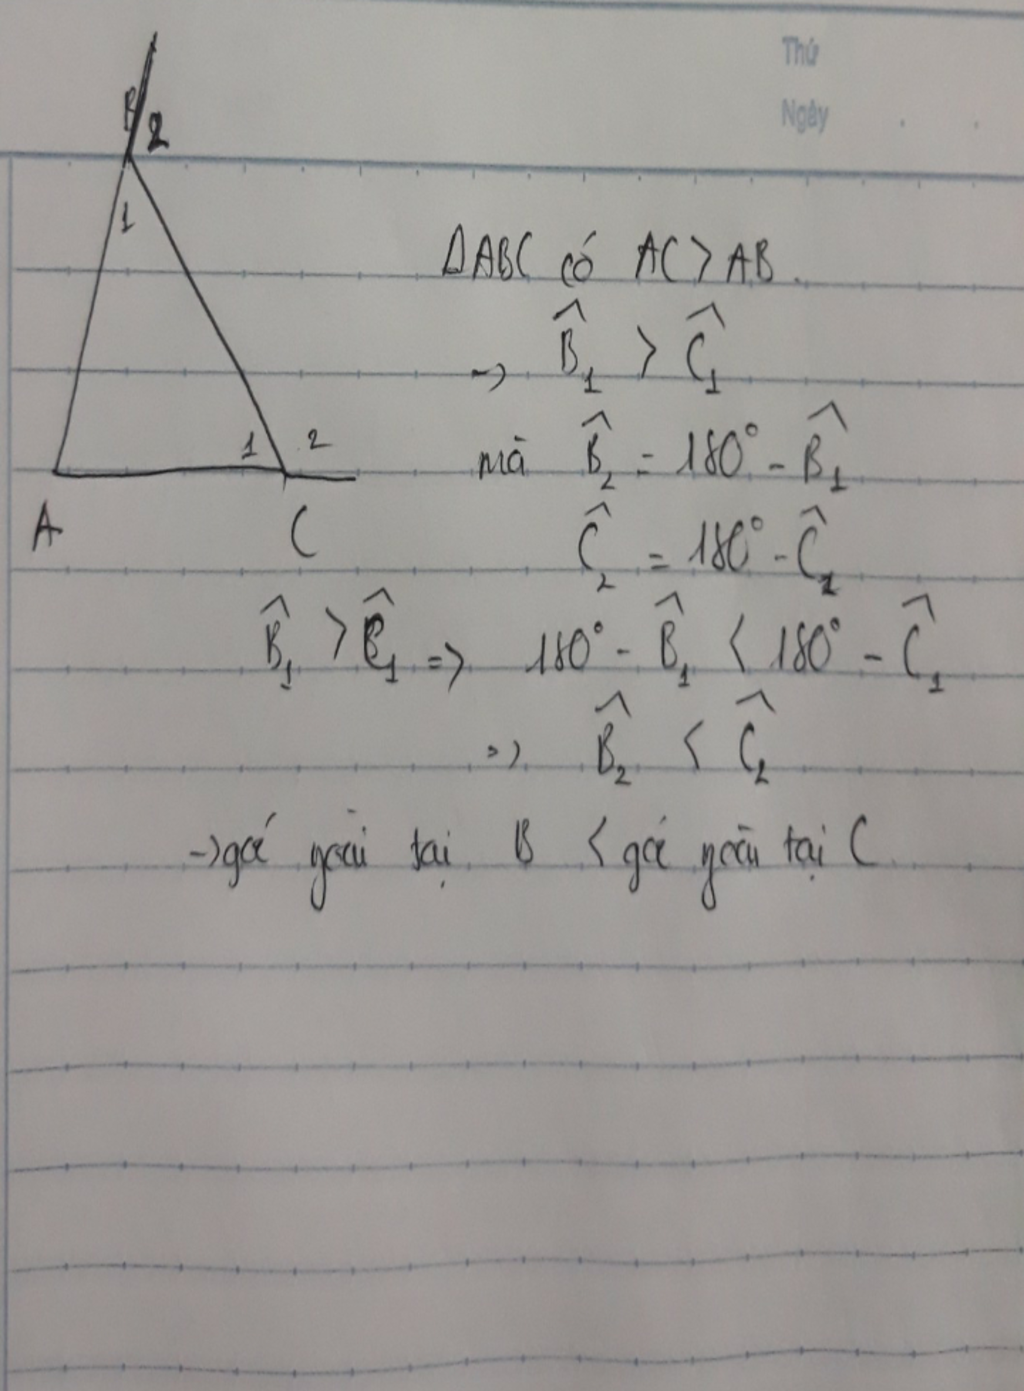 Thứ
Ngày
B
2
1
ΔABC có AC > AB.
→ B̂₁ > Ĉ₁
1 2
mà B̂₂ = 180° - B̂₁
A C
Ĉ₂ = 180° - Ĉ₁
B̂₁ > Ĉ₁ => 180° - B̂₁ < 180° - Ĉ₁
=> B̂₂ < Ĉ₂
→ góc ngoài tại B < góc ngoài tại C